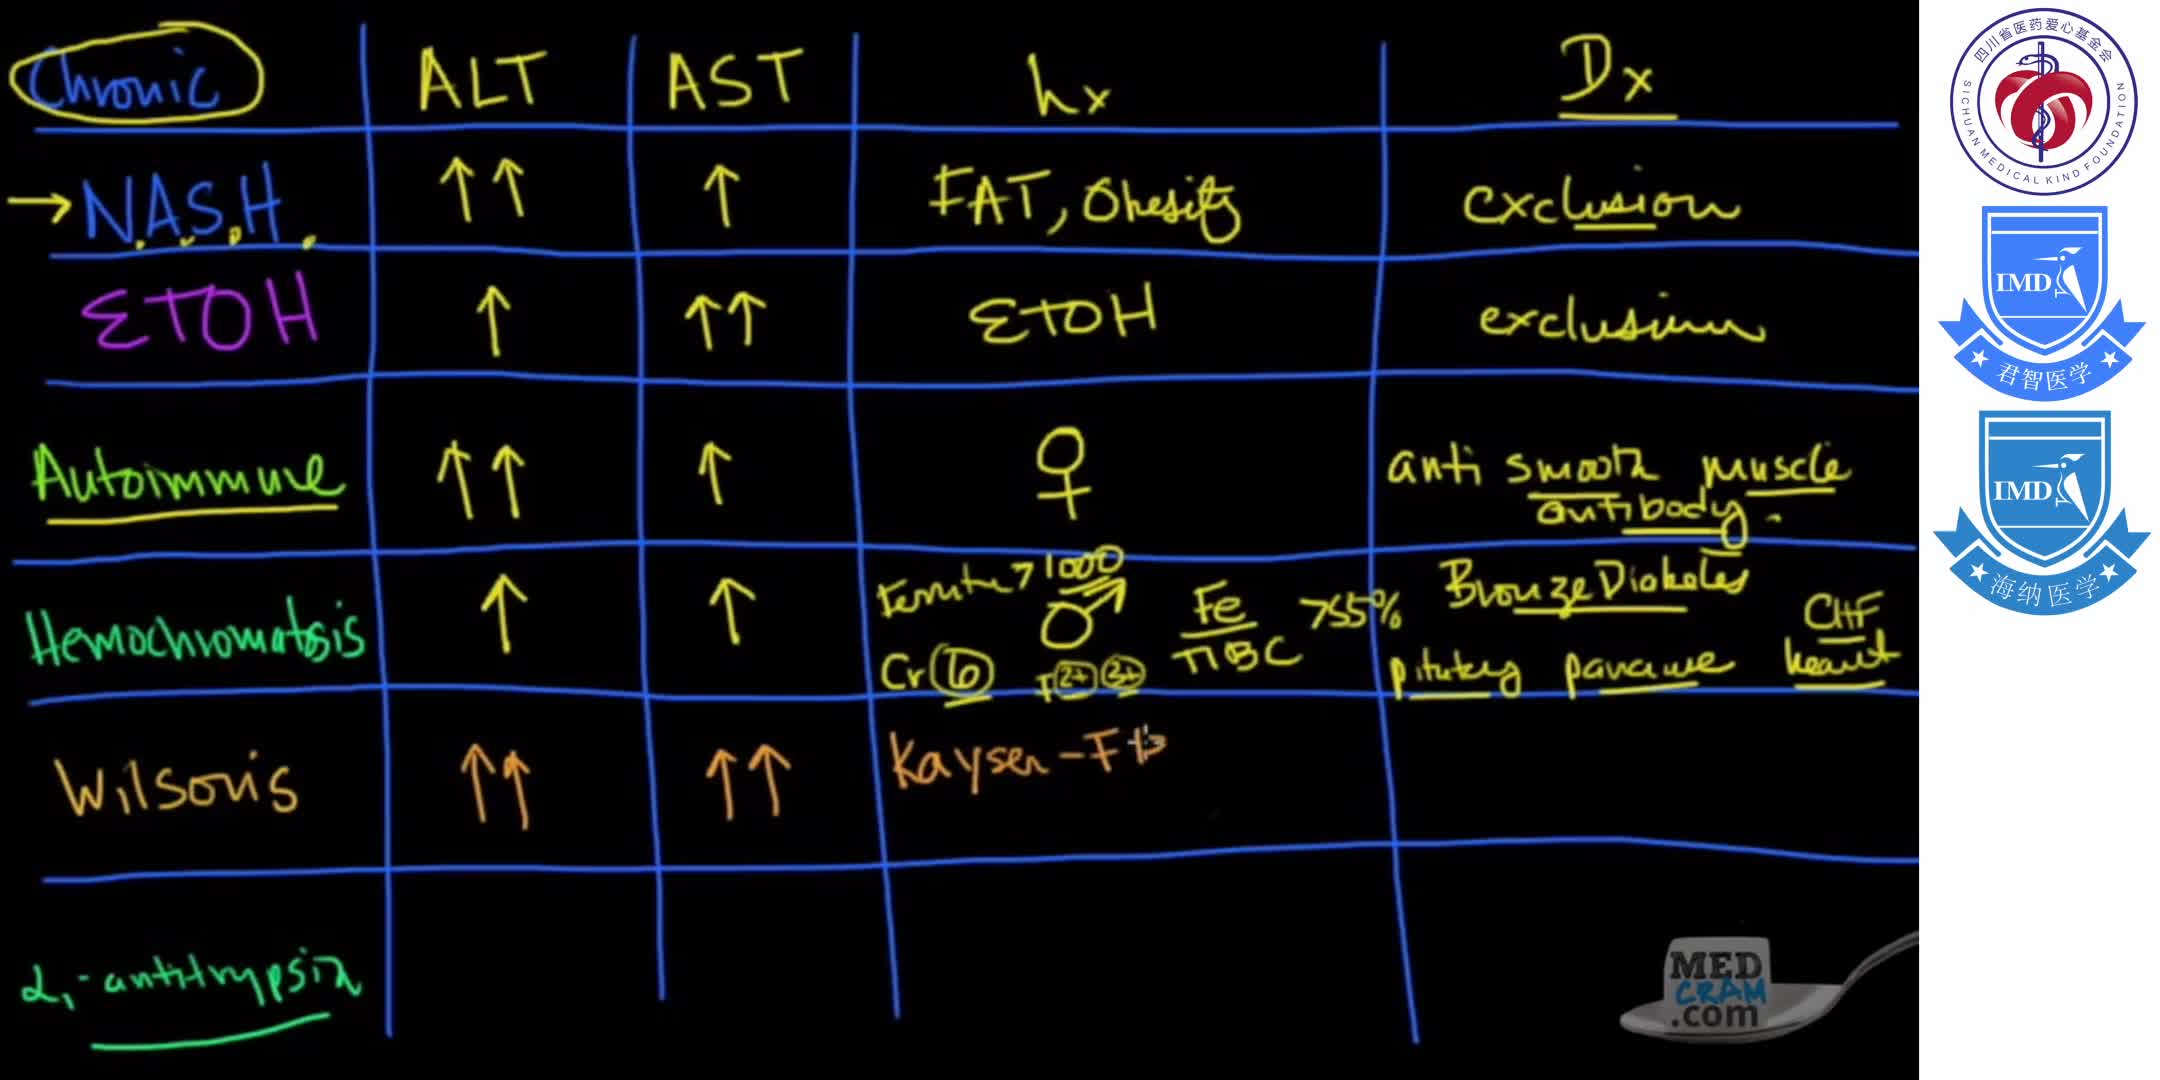 Chronic ALT AST hx Dx
→ N.A.S.H. ↑↑ ↑ FAT, Obesity exclusion
ETOH ↑ ↑↑ ETOH exclusion
Autoimmune ↑↑ ↑ ♀ anti smooth muscle
antibody.
Hemochromatosis ↑ ↑ >1000 ♂ Fe >55% Bronze Diabetes CHF
Cr 6 2+ 3+ TIBC heart
Wilson's ↑↑ ↑↑ Kayser-F
α1-antitrypsin
MED
CRAM
.com
四川省医药爱心基金会
SICHUAN MEDICAL KIND FOUNDATION
IMD
君智医学
IMD
海纳医学